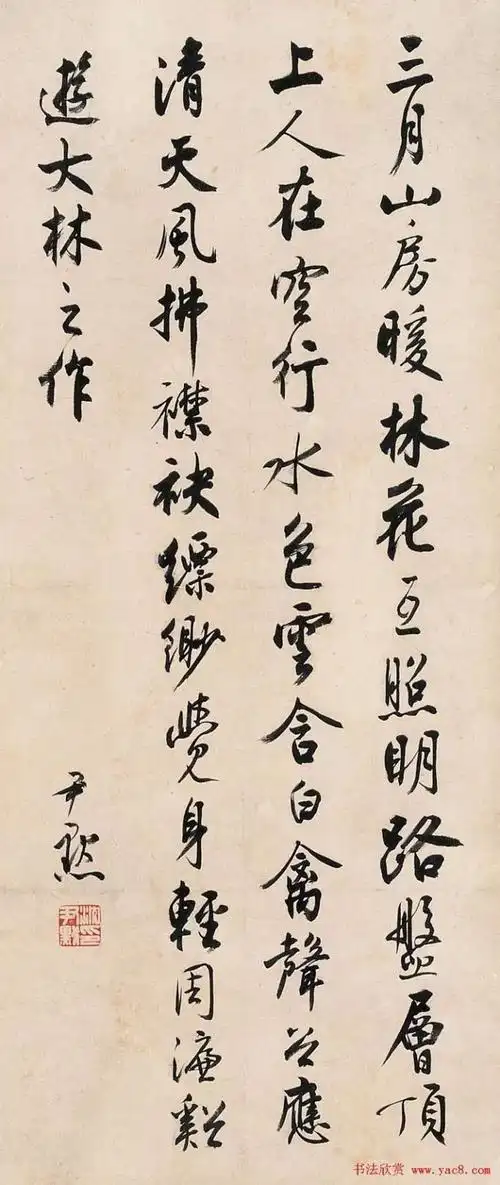 三月山房暖林花互照明路盤層頂
上人在空行水色雲含白禽聲谷應
清天風拂襟袂縹緲覺身輕周濂谿
遊大林之作
尹默
沈尹默
书法欣赏 www.yac8.com